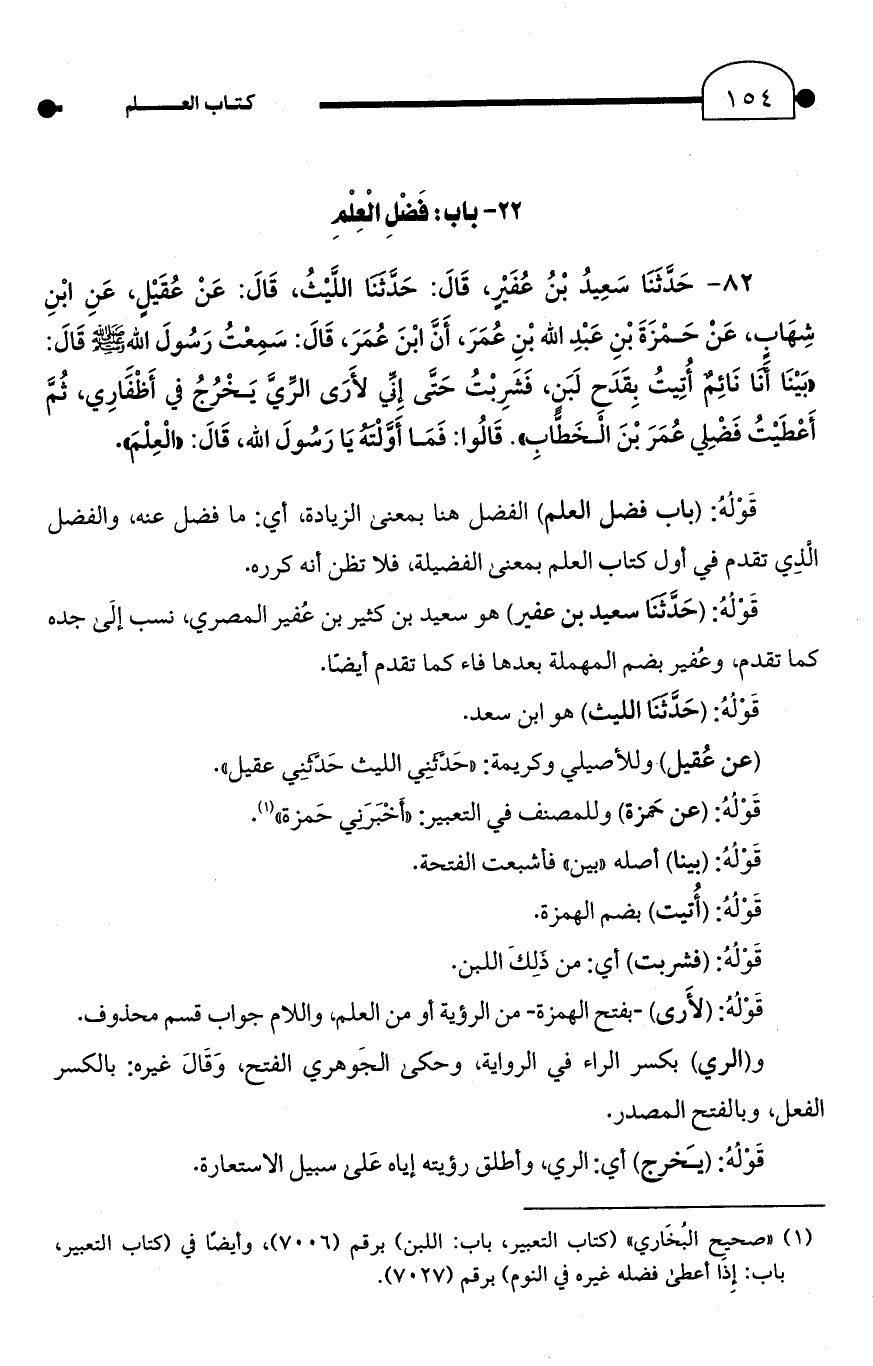 ١٥٤ كتاب العـــــلم
٢٢- باب: فَضْلِ الْعِلْمِ
٨٢- حَدَّثَنَا سَعِيدُ بْنُ عُفَيْرٍ، قَالَ: حَدَّثَنَا اللَّيْثُ، قَالَ: عَنْ عُقَيْلٍ، عَنِ ابْنِ
شِهَابٍ، عَنْ حَـمْزَةَ بْنِ عَبْدِ الله بْنِ عُمَرَ، أَنَّ ابْنَ عُمَرَ، قَالَ: سَمِعْتُ رَسُولَ الله ﷺ قَالَ:
«بَيْنَا أَنَا نَائِمٌ أُتِيتُ بِقَدَحِ لَبَنٍ، فَشَرِبْتُ حَتَّى إِنِّي لأَرَى الرِّيَّ يَـخْرُجُ فِي أَظْفَارِي، ثُمَّ
أَعْطَيْتُ فَضْلِي عُمَرَ بْنَ الْـخَطَّابِ». قَالُوا: فَمَـا أَوَّلْتَهُ يَا رَسُولَ الله، قَالَ: «الْعِلْمَ».
قَوْلُهُ: (باب فضل العلم) الفضل هنا بمعنى الزيادة، أي: ما فضل عنه، والفضل
الَّذِي تقدم في أول كتاب العلم بمعنى الفضيلة، فلا تظن أنه كرره.
قَوْلُهُ: (حَدَّثَنَا سعيد بن عفير) هو سعيد بن كثير بن عُفير المصري، نسب إلَى جده
كما تقدم، وعُفير بضم المهملة بعدها فاء كما تقدم أيضًا.
قَوْلُهُ: (حَدَّثَنَا الليث) هو ابن سعد.
(عن عُقيل) وللأصيلي وكريمة: «حَدَّثَنِي الليث حَدَّثَنِي عقيل».
قَوْلُهُ: (عن حَمزة) وللمصنف في التعبير: «أَخْبَرَنِي حَمزة»(١).
قَوْلُهُ: (بينا) أصله «بين» فأشبعت الفتحة.
قَوْلُهُ: (أُتيت) بضم الهمزة.
قَوْلُهُ: (فشربت) أي: من ذَلِكَ اللبن.
قَوْلُهُ: (لأَرى) -بفتح الهمزة- من الرؤية أو من العلم، واللام جواب قسم محذوف.
و(الري) بكسر الراء في الرواية، وحكى الجَوهري الفتح، وَقَالَ غيره: بالكسر
الفعل، وبالفتح المصدر.
قَوْلُهُ: (يـَخرج) أي: الري، وأطلق رؤيته إياه عَلى سبيل الاستعارة.
(١) «صحيح البُخَاري» (كتاب التعبير، باب: اللبن) برقم (٧٠٠٦)، وأيضًا في (كتاب التعبير،
باب: إِذَا أعطى فضله غيره في النوم) برقم (٧٠٢٧).